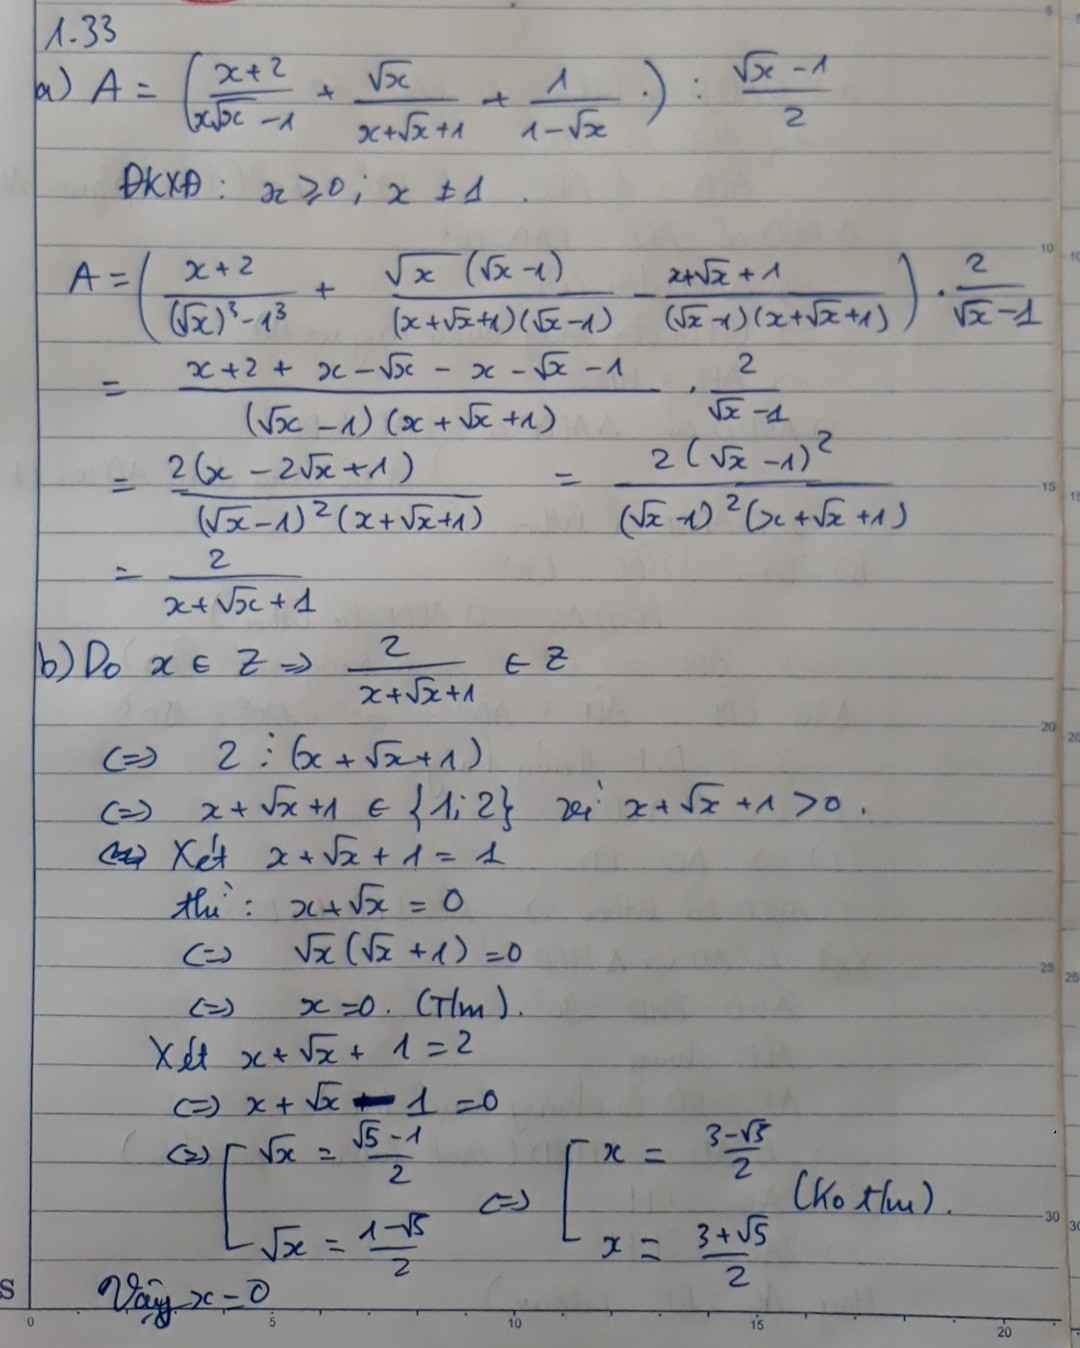 1.33
a) A = ( (x+2)/(x√x −1) + √x/(x+√x+1) + 1/(1−√x) ) : (√x −1)/2
ĐKXĐ : x ≥ 0 ; x ≠ 1 .
A = ( (x+2)/((√x)³−1³) + √x (√x −1)/((x+√x+1)(√x −1)) − (x+√x+1)/((√x −1)(x+√x+1)) ) . 2/(√x −1)
= (x+2 + x −√x − x −√x −1)/((√x −1)(x+√x+1)) . 2/(√x −1)
= 2(x − 2√x +1)/((√x−1)²(x+√x+1)) = 2(√x −1)²/((√x −1)²(x+√x +1))
= 2/(x+√x+1)
b) Do x ∈ Z => 2/(x+√x+1) ∈ Z
<=> 2 ⋮ (x+√x+1)
<=> x+√x+1 ∈ {1; 2} x+√x +1 >0 .
Xét x+√x + 1 = 1
thì : x+√x = 0
<=> √x (√x +1) =0
<=> x =0. (T/m).
Xét x+√x + 1 = 2
<=> x + √x − 1 =0
<=> [ √x = (√5 −1)/2 <=> [ x = (3−√5)/2
√x = (1−√5)/2 x = (3+√5)/2 (Ko t/m).
Vậy x = 0
S
10
15
20
25
30
0 5 10 15 20